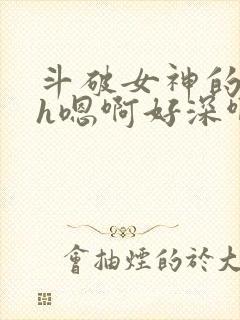 斗破女神的
h嗯啊好深
會抽煙的於大